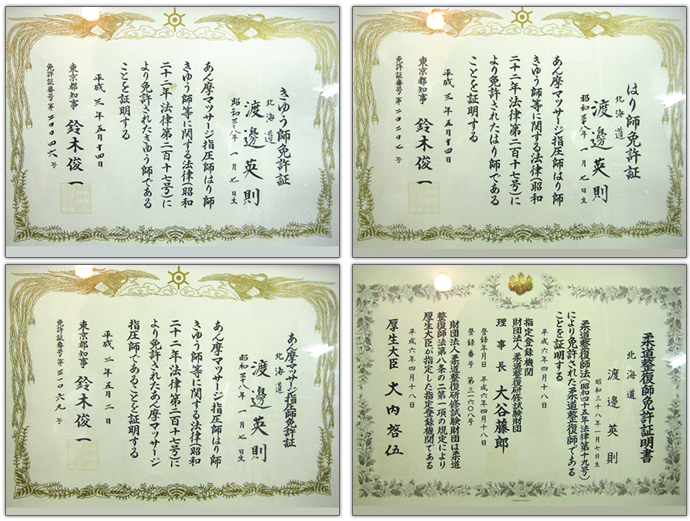 きゆう師免許証
北海道
渡邊英則
昭和三十八年一月七日生
あん摩マツサージ指圧師はり師
きゆう師等に関する法律(昭和
二十二年法律第二百十七号)に
より免許されたきゆう師である
ことを証明する
平成三年五月十四日
東京都知事 鈴木俊一
はり師免許証
北海道
渡邊英則
昭和三十八年一月七日生
あん摩マツサージ指圧師はり師
きゆう師等に関する法律(昭和
二十二年法律第二百十七号)に
より免許されたはり師である
ことを証明する
平成三年五月十四日
東京都知事 鈴木俊一
あん摩マツサージ指圧師免許証
北海道
渡邊英則
昭和三十八年一月七日生
あん摩マツサージ指圧師はり師
きゆう師等に関する法律(昭和
二十二年法律第二百十七号)に
より免許されたあん摩マツサージ
指圧師であることを証明する
平成二年五月二日
東京都知事 鈴木俊一
柔道整復師免許証明書
北海道
渡邊英則
昭和三十八年一月七日生
柔道整復師法(昭和四十五年法律第十九号)
により免許された柔道整復師である
ことを証明する
平成六年四月十八日
指定登録機関
財団法人柔道整復研修試験財団
理事長 大谷藤郎
登録年月日 平成六年四月十八日
登録番号 第三一六〇八号
財団法人柔道整復研修試験財団は柔道
整復師法第八条の二第一項の規定により
厚生大臣が指定した指定登録機関である
平成六年四月十八日
厚生大臣 大内啓伍